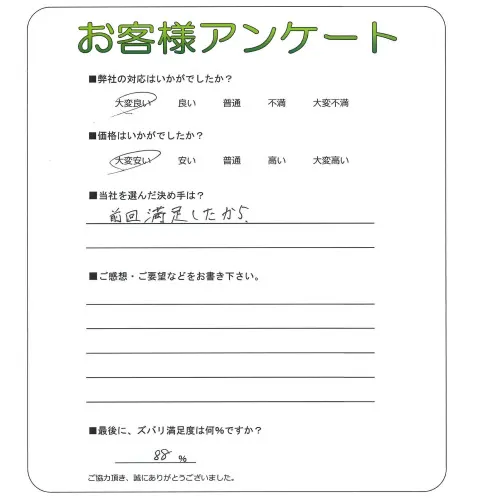 お客様アンケート
■弊社の対応はいかがでしたか？
大変良い 良い 普通 不満 大変不満
■価格はいかがでしたか？
大変安い 安い 普通 高い 大変高い
■当社を選んだ決め手は？
前回満足したから
■ご感想・ご要望などをお書き下さい。
■最後に、ズバリ満足度は何％ですか？
88 ％
ご協力頂き、誠にありがとうございました。